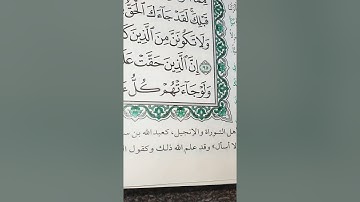 قَبْلِكَ لَقَدْ جَاءَكَ الْحَقُّ
وَلَا تَكُونَنَّ مِنَ الَّذِينَ كَ
إِنَّ الَّذِينَ حَقَّتْ عَلَ
وَلَوْ جَاءَتْهُمْ كُلُّ
هل التوراة والإنجيل، كعبد الله بن س
لا أسأل» وقد علم الله ذلك وكقول ا